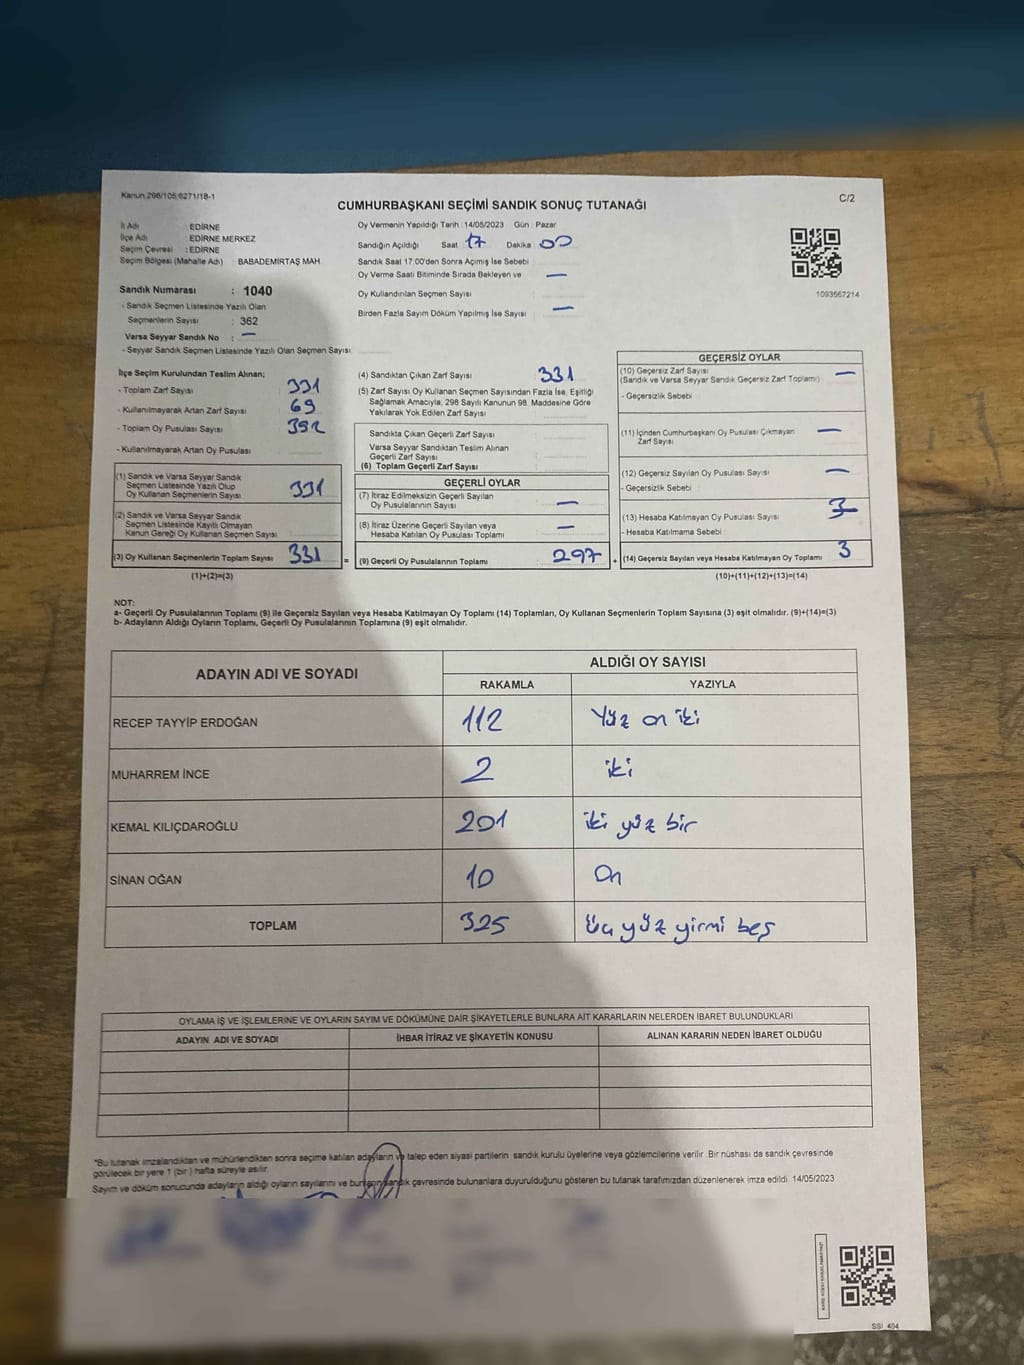 Kanun 298/105,6271/18-1
C/2
CUMHURBAŞKANI SEÇİMİ SANDIK SONUÇ TUTANAĞI
İl Adı : EDİRNE
İlçe Adı : EDİRNE MERKEZ
Seçim Çevresi : EDİRNE
Seçim Bölgesi (Mahalle Adı) : BABADEMİRTAŞ MAH
Sandık Numarası : 1040
- Sandık Seçmen Listesinde Yazılı Olan
Seçmenlerin Sayısı : 362
Varsa Seyyar Sandık No : —
- Seyyar Sandık Seçmen Listesinde Yazılı Olan Seçmen Sayısı
Oy Vermenin Yapıldığı Tarih :14/05/2023 Gün : Pazar
Sandığın Açıldığı Saat 17 Dakika 00
Sandık Saat 17.00'den Sonra Açılmış İse Sebebi
Oy Verme Saati Bitiminde Sırada Bekleyen ve —
Oy Kullandırılan Seçmen Sayısı
Birden Fazla Sayım Döküm Yapılmış İse Sayısı —
1093567214
İlçe Seçim Kurulundan Teslim Alınan;
- Toplam Zarf Sayısı 331
- Kullanılmayarak Artan Zarf Sayısı 69
- Toplam Oy Pusulası Sayısı 392
- Kullanılmayarak Artan Oy Pusulası
(1) Sandık ve Varsa Seyyar Sandık
Seçmen Listesinde Yazılı Olup
Oy Kullanan Seçmenlerin Sayısı 331
(2) Sandık ve Varsa Seyyar Sandık
Seçmen Listesinde Kayıtlı Olmayan
Kanun Gereği Oy Kullanan Seçmen Sayısı
(3) Oy Kullanan Seçmenlerin Toplam Sayısı 331 =
(1)+(2)=(3)
(4) Sandıktan Çıkan Zarf Sayısı 331
(5) Zarf Sayısı Oy Kullanan Seçmen Sayısından Fazla İse, Eşitliği
Sağlamak Amacıyla, 298 Sayılı Kanunun 98. Maddesine Göre
Yakılarak Yok Edilen Zarf Sayısı
Sandıkta Çıkan Geçerli Zarf Sayısı
Varsa Seyyar Sandıktan Teslim Alınan
Geçerli Zarf Sayısı
(6) Toplam Geçerli Zarf Sayısı
GEÇERLİ OYLAR
(7) İtiraz Edilmeksizin Geçerli Sayılan
Oy Pusulalarının Sayısı —
(8) İtiraz Üzerine Geçerli Sayılan veya
Hesaba Katılan Oy Pusulası Toplamı —
(9) Geçerli Oy Pusulalarının Toplamı 297 +
GEÇERSİZ OYLAR
(10) Geçersiz Zarf Sayısı —
(Sandık ve Varsa Seyyar Sandık Geçersiz Zarf Toplamı)
- Geçersizlik Sebebi
(11) İçinden Cumhurbaşkanı Oy Pusulası Çıkmayan —
Zarf Sayısı
(12) Geçersiz Sayılan Oy Pusulası Sayısı —
- Geçersizlik Sebebi
(13) Hesaba Katılmayan Oy Pusulası Sayısı 3
- Hesaba Katılmama Sebebi
(14) Geçersiz Sayılan veya Hesaba Katılmayan Oy Toplamı 3
(10)+(11)+(12)+(13)=(14)
NOT:
a- Geçerli Oy Pusulalarının Toplamı (9) ile Geçersiz Sayılan veya Hesaba Katılmayan Oy Toplamı (14) Toplamları, Oy Kullanan Seçmenlerin Toplam Sayısına (3) eşit olmalıdır. (9)+(14)=(3)
b- Adayların Aldığı Oyların Toplamı, Geçerli Oy Pusulalarının Toplamına (9) eşit olmalıdır.
ADAYIN ADI VE SOYADI ALDIĞI OY SAYISI
RAKAMLA YAZIYLA
RECEP TAYYİP ERDOĞAN 112 Yüz on iki
MUHARREM İNCE 2 iki
KEMAL KILIÇDAROĞLU 201 iki yüz bir
SİNAN OĞAN 10 On
TOPLAM 325 Üç yüz yirmi beş
OYLAMA İŞ VE İŞLEMLERİNE VE OYLARIN SAYIM VE DÖKÜMÜNE DAİR ŞİKAYETLERLE BUNLARA AİT KARARLARIN NELERDEN İBARET BULUNDUKLARI
ADAYIN ADI VE SOYADI İHBAR İTİRAZ VE ŞİKAYETİN KONUSU ALINAN KARARIN NEDEN İBARET OLDUĞU
*Bu tutanak imzalandıktan ve mühürlendikten sonra seçime katılan adayların ve talep eden siyasi partilerin sandık kurulu üyelerine veya gözlemcilerine verilir. Bir nüshası da sandık çevresinde
görülecek bir yere 1 (bir ) hafta süreyle asılır.
Sayım ve döküm sonucunda adayların aldığı oyların sayılarını ve bunların sandık çevresinde bulunanlara duyurulduğunu gösteren bu tutanak tarafımızdan düzenlenerek imza edildi. 14/05/2023
SSI_404